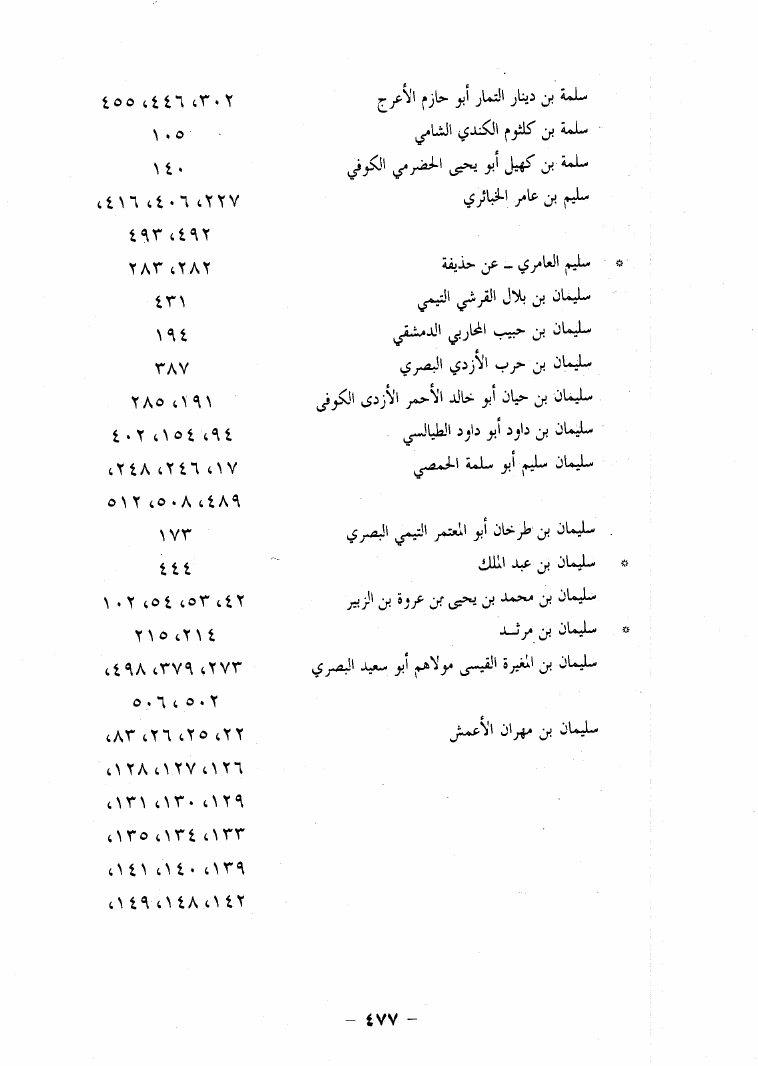 سلمة بن دينار التمار أبو حازم الأعرج ٣٠٢، ٤٤٦، ٤٥٥
سلمة بن كلثوم الكندي الشامي ١٠٥
سلمة بن كهيل أبو يحيى الحضرمي الكوفي ١٤٠
سليم بن عامر الخبائري ٢٢٧، ٤٠٦، ٤١٦،
٤٩٢، ٤٩٣
* سليم العامري ــ عن حذيفة ٢٨٢، ٢٨٣
سليمان بن بلال القرشي التيمي ٤٣١
سليمان بن حبيب المحاربي الدمشقي ١٩٤
سليمان بن حرب الأزدي البصري ٣٨٧
سليمان بن حيان أبو خالد الأحمر الأزدى الكوفى ١٩١، ٢٨٥
سليمان بن داود أبو داود الطيالسي ٩٤، ١٥٤، ٤٠٢
سليمان سليم أبو سلمة الحمصي ١٧، ٢٤٦، ٢٤٨،
٤٨٩، ٥٠٨، ٥١٢
سليمان بن طرخان أبو المعتمر التيمي البصري ١٧٣
* سليمان بن عبد الملك ٤٤٤
سليمان بن محمد بن يحيى بن عروة بن الزبير ٤٢، ٥٣، ٥٤، ١٠٢
* سليمان بن مرثد ٢١٤، ٢١٥
سليمان بن المغيرة القيسى مولاهم أبو سعيد البصري ٢٧٣، ٣٧٩، ٤٩٨،
٥٠٢، ٥٠٦
سليمان بن مهران الأعمش ٢٢، ٢٥، ٢٦، ٨٣،
١٢٦، ١٢٧، ١٢٨،
١٢٩، ١٣٠، ١٣١،
١٣٣، ١٣٤، ١٣٥،
١٣٩، ١٤٠، ١٤١،
١٤٢، ١٤٨، ١٤٩،
– ٤٧٧ –